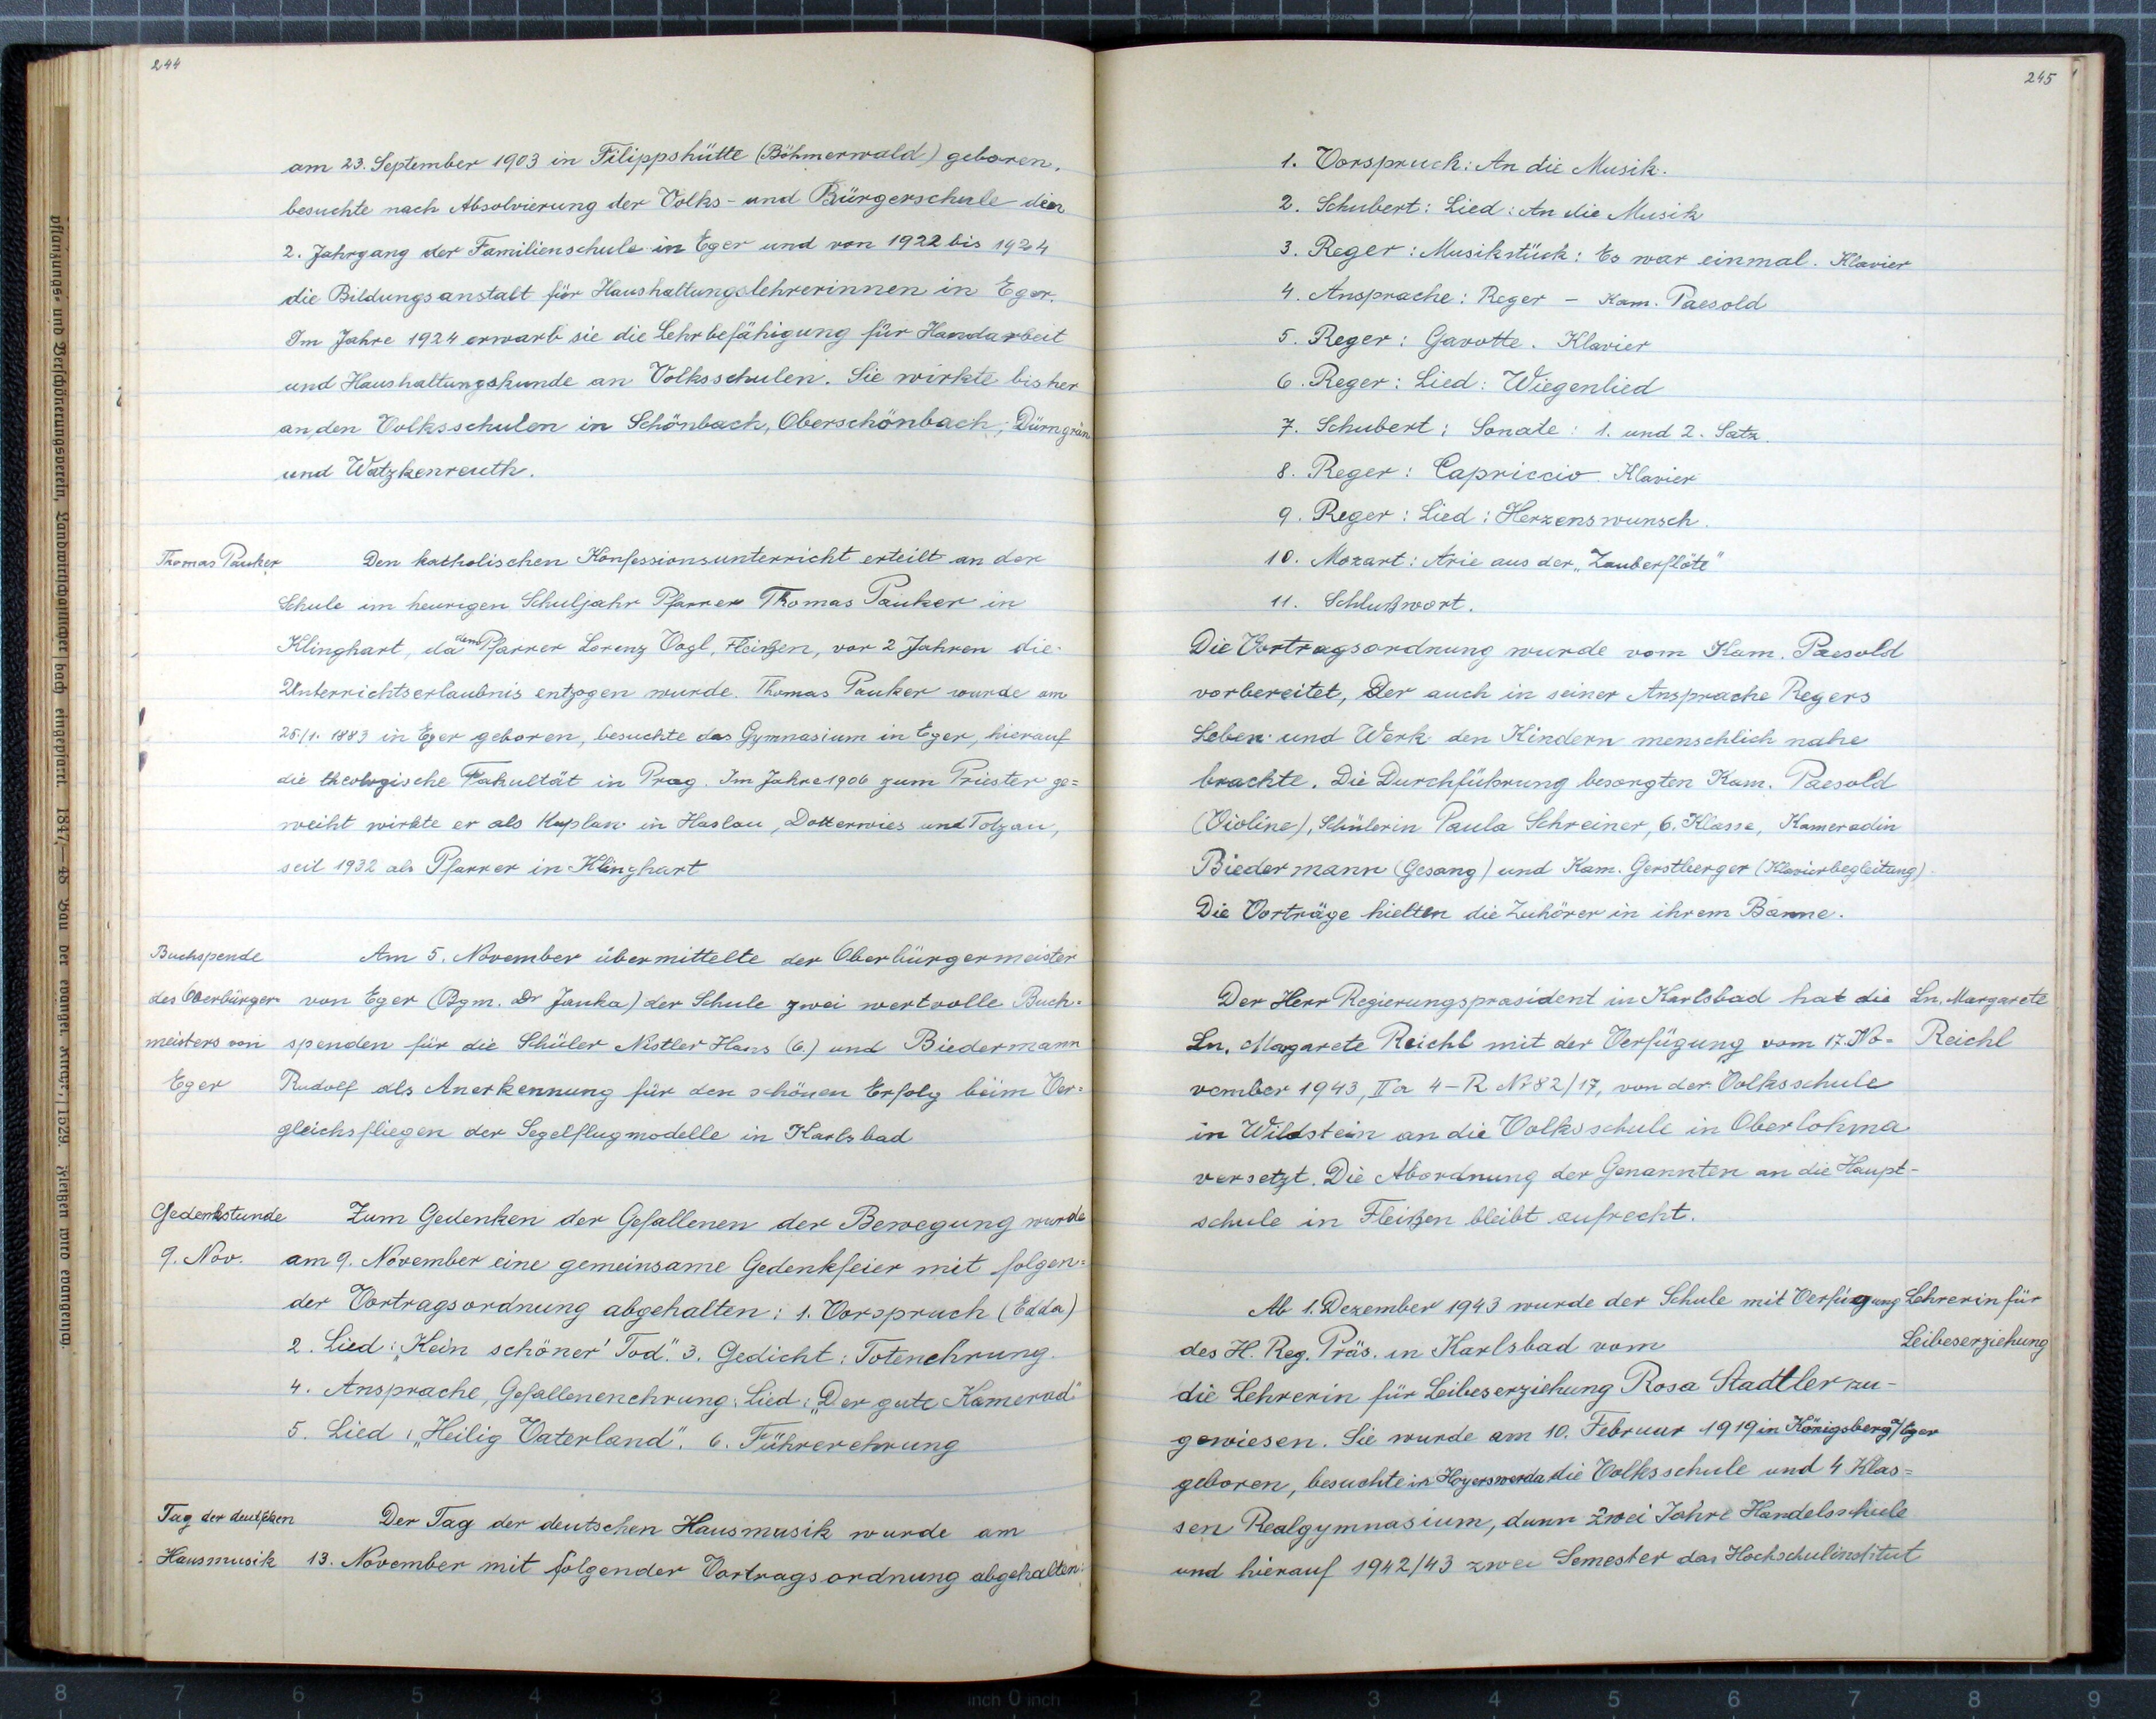 244
am 23. September 1903 in Filippshütte (Böhmerwald) geboren,
besuchte nach Absolvierung der Volks- und Bürgerschule den
2. Jahrgang der Familienschule in Eger und von 1922 bis 1924
die Bildungsanstalt für Haushaltungslehrerinnen in Eger.
Im Jahre 1924 erwarb sie die Lehrbefähigung für Handarbeit
und Haushaltungskunde an Volksschulen. Sie wirkte bisher
an den Volksschulen in Schönbach, Oberschönbach, Dürngrün
und Watzkenreuth.
Thomas Pauker Den katholischen Konfessionsunterricht erteilt an der
Schule im heurigen Schuljahr Pfarrer Thomas Pauker in
Klinghart, da dem Pfarrer Lorenz Vogl, Fleißen, vor 2 Jahren die
Unterrichtserlaubnis entzogen wurde. Thomas Pauker wurde am
25./1. 1883 in Eger geboren, besuchte das Gymnasium in Eger, hierauf
die theologische Fakultät in Prag. Im Jahre 1906 zum Priester ge=
weiht wirkte er als Kaplan in Haslau, Dotterwies und Totzau,
seit 1932 als Pfarrer in Klinghart
Buchspende Am 5. November übermittelte der Oberbürgermeister
des Oberbürger= von Eger (Bgm. Dr Janka) der Schule zwei wertvolle Buch=
meisters von spenden für die Schüler Nistler Hans (6.) und Biedermann
Eger Rudolf als Anerkennung für den schönen Erfolg beim Ver=
gleichsfliegen der Segelflugmodelle in Karlsbad
Gedenkstunde Zum Gedenken der Gefallenen der Bewegung wurde
9. Nov. am 9. November eine gemeinsame Gedenkfeier mit folgen=
der Vortragsordnung abgehalten: 1. Vorspruch (Edda)
2. Lied: „Kein schöner' Tod". 3. Gedicht: Totenehrung.
4. Ansprache, Gefallenenehrung: Lied: „Der gute Kamerad"
5. Lied: „Heilig Vaterland". 6. Führerehrung
Tag der deutschen Der Tag der deutschen Hausmusik wurde am
Hausmusik 13. November mit folgender Vortragsordnung abgehalten:
245
1. Vorspruch: An die Musik.
2. Schubert: Lied: An die Musik
3. Reger: Musikstück: Es war einmal. Klavier
4. Ansprache: Reger – Kam. Paesold
5. Reger: Gavotte. Klavier
6. Reger: Lied: Wiegenlied
7. Schubert: Sonate: 1. und 2. Satz.
8. Reger: Capriccio. Klavier
9. Reger: Lied: Herzenswunsch.
10. Mozart: Arie aus der „Zauberflöte"
11. Schlußwort.
Die Vortragsordnung wurde vom Kam. Paesold
vorbereitet, der auch in seiner Ansprache Regers
Leben und Werk den Kindern menschlich nahe
brachte. Die Durchführung besorgten Kam. Paesold
(Violine), Schülerin Paula Schreiner, 6. Klasse, Kameradin
Biedermann (Gesang) und Kam. Gerstberger (Klavierbegleitung).
Die Vorträge hielten die Zuhörer in ihrem Banne.
Der Herr Regierungspräsident in Karlsbad hat die Ln. Margarete
Ln. Margarete Reichl mit der Verfügung vom 17. No= Reichl
vember 1943, II a 4–R Nr 82/17, von der Volksschule
in Wildstein an die Volksschule in Oberlohma
versetzt. Die Abordnung der Genannten an die Haupt-
schule in Fleißen bleibt aufrecht.
Ab 1. Dezember 1943 wurde der Schule mit Verfügung Lehrerin für
des H. Reg. Präs. in Karlsbad vom Leibeserziehung
die Lehrerin für Leibeserziehung Rosa Stadtler zu-
gewiesen. Sie wurde am 10. Februar 1919 in Königsberg a/Eger
geboren, besuchte in Hoyerswerda die Volksschule und 4 Klas=
sen Realgymnasium, dann zwei Jahre Handelsschule
und hierauf 1942/43 zwei Semester das Hochschulinstitut